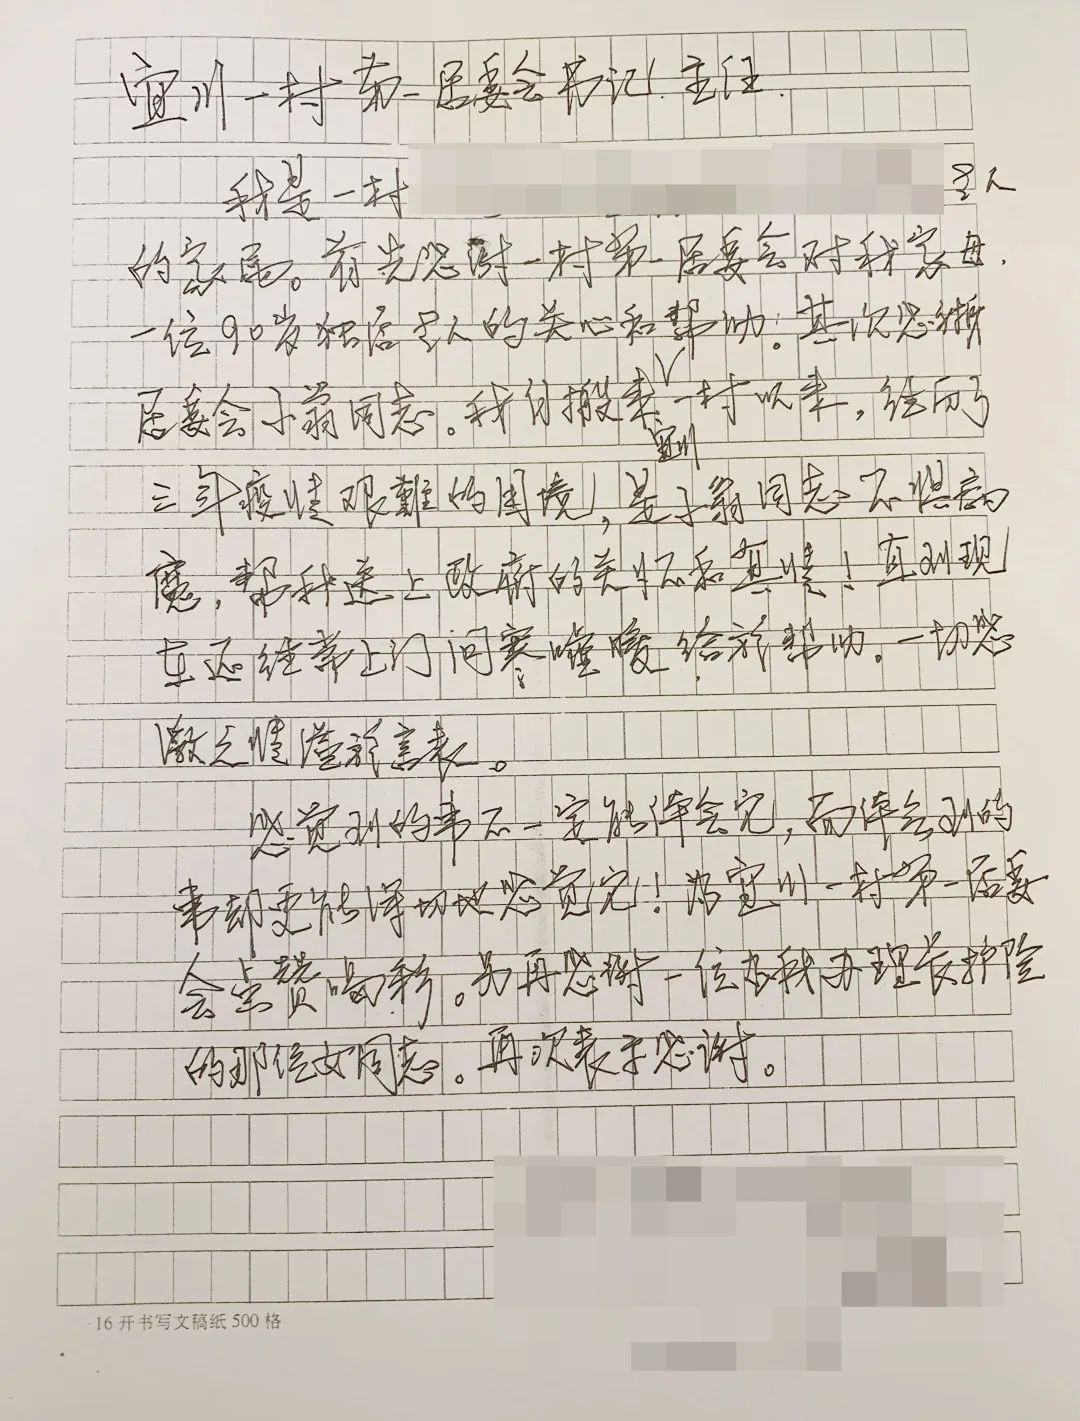 宜川一村第一居委会书记、主任:
我是一村
老人
的家属。首先感谢一村第一居委会对我家母,
一位90岁独居老人的关心和帮助。其次感谢
居委会小翁同志。我们搬来宜川一村以来,经历了
三年疫情艰难的困境,是小翁同志不惧病
魔,帮我送上政府的关怀和真情!直到现
在还经常上门问寒嘘暖给于帮助。一切感
激之情溢于言表。
感觉到的事不一定能体会它,而体会到的
事却更能深切地感觉它!为宜川一村第一居委
会点赞喝彩。另再感谢一位为我办理长护险
的那位女同志。再次表于感谢。
16开书写文稿纸500格